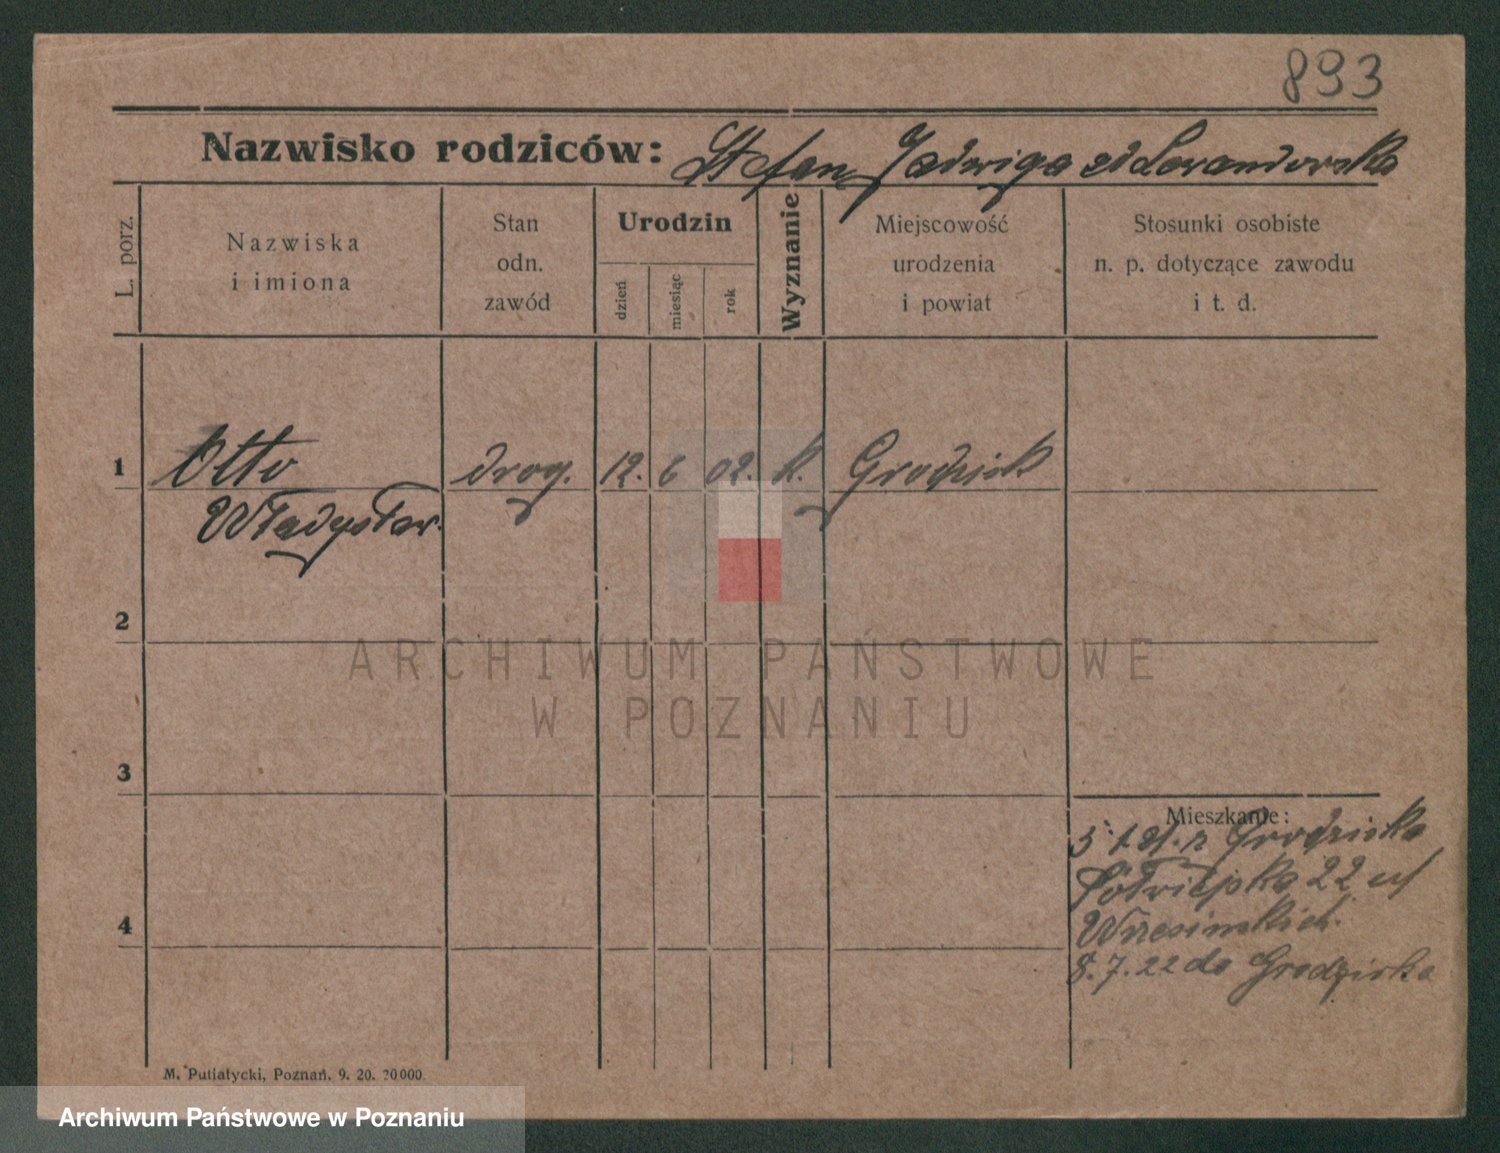 893
Nazwisko rodziców: Stefan Jadwiga
L. porz.
Nazwiska
i imiona
Stan
odn.
zawód
Urodzin
dzień
miesiąc
rok
Wyznanie
Miejscowość
urodzenia
i powiat
Stosunki osobiste
n. p. dotyczące zawodu
i t. d.
1 Otto drog. 12. 6 02. k. Grodzisk
Władysław.
2
ARCHIWUM PAŃSTWOWE
W POZNANIU
3
Mieszkanie:
z Grodziska
22 u
4
8.7.22 do Grodziska
M. Putiatycki, Poznań. 9. 20. 20000.
Archiwum Państwowe w Poznaniu